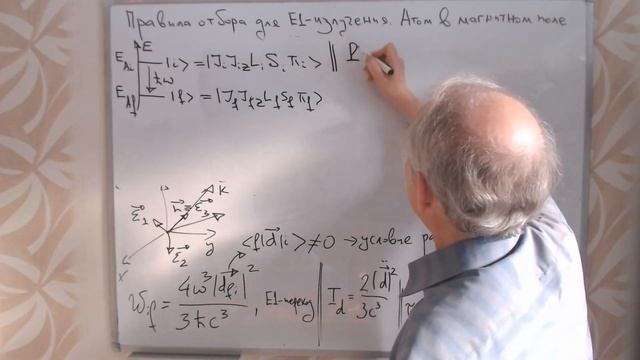 Правила отбора для E1-излучения. Атом в магнитном поле
E
E_{Ai} |i> = |J_i J_{iz} L_i S_i π_i> ||
ħω
E_{Af} |f> = |J_f J_{fz} L_f S_f π_f>
k
n = ε_3
ε_1
y
ε_2
x
<f|d|i> ≠ 0 → условие
w_{if} = 4ω^3|d_{fi}|^2 / 3ħc^3, E1-переход || I_d = 2|d̈|^2 / 3c^3